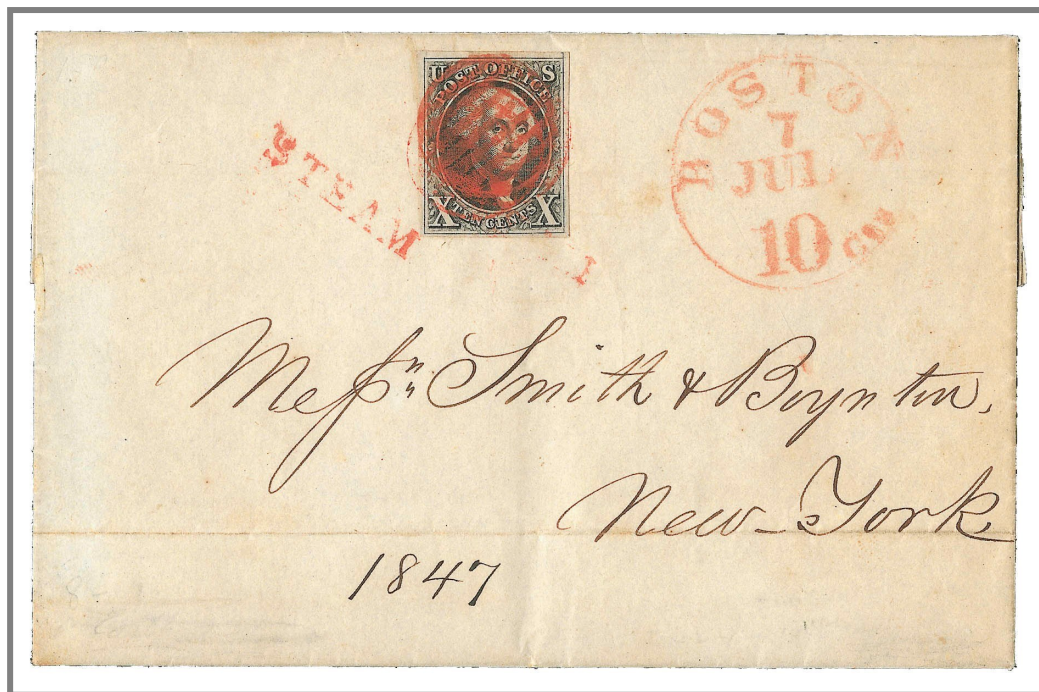 U S
POST OFFICE
X TEN CENTS X
STEAM
BOSTON
7
JUL
10 cts
Messrs Smith & Boynton,
New-York
1847